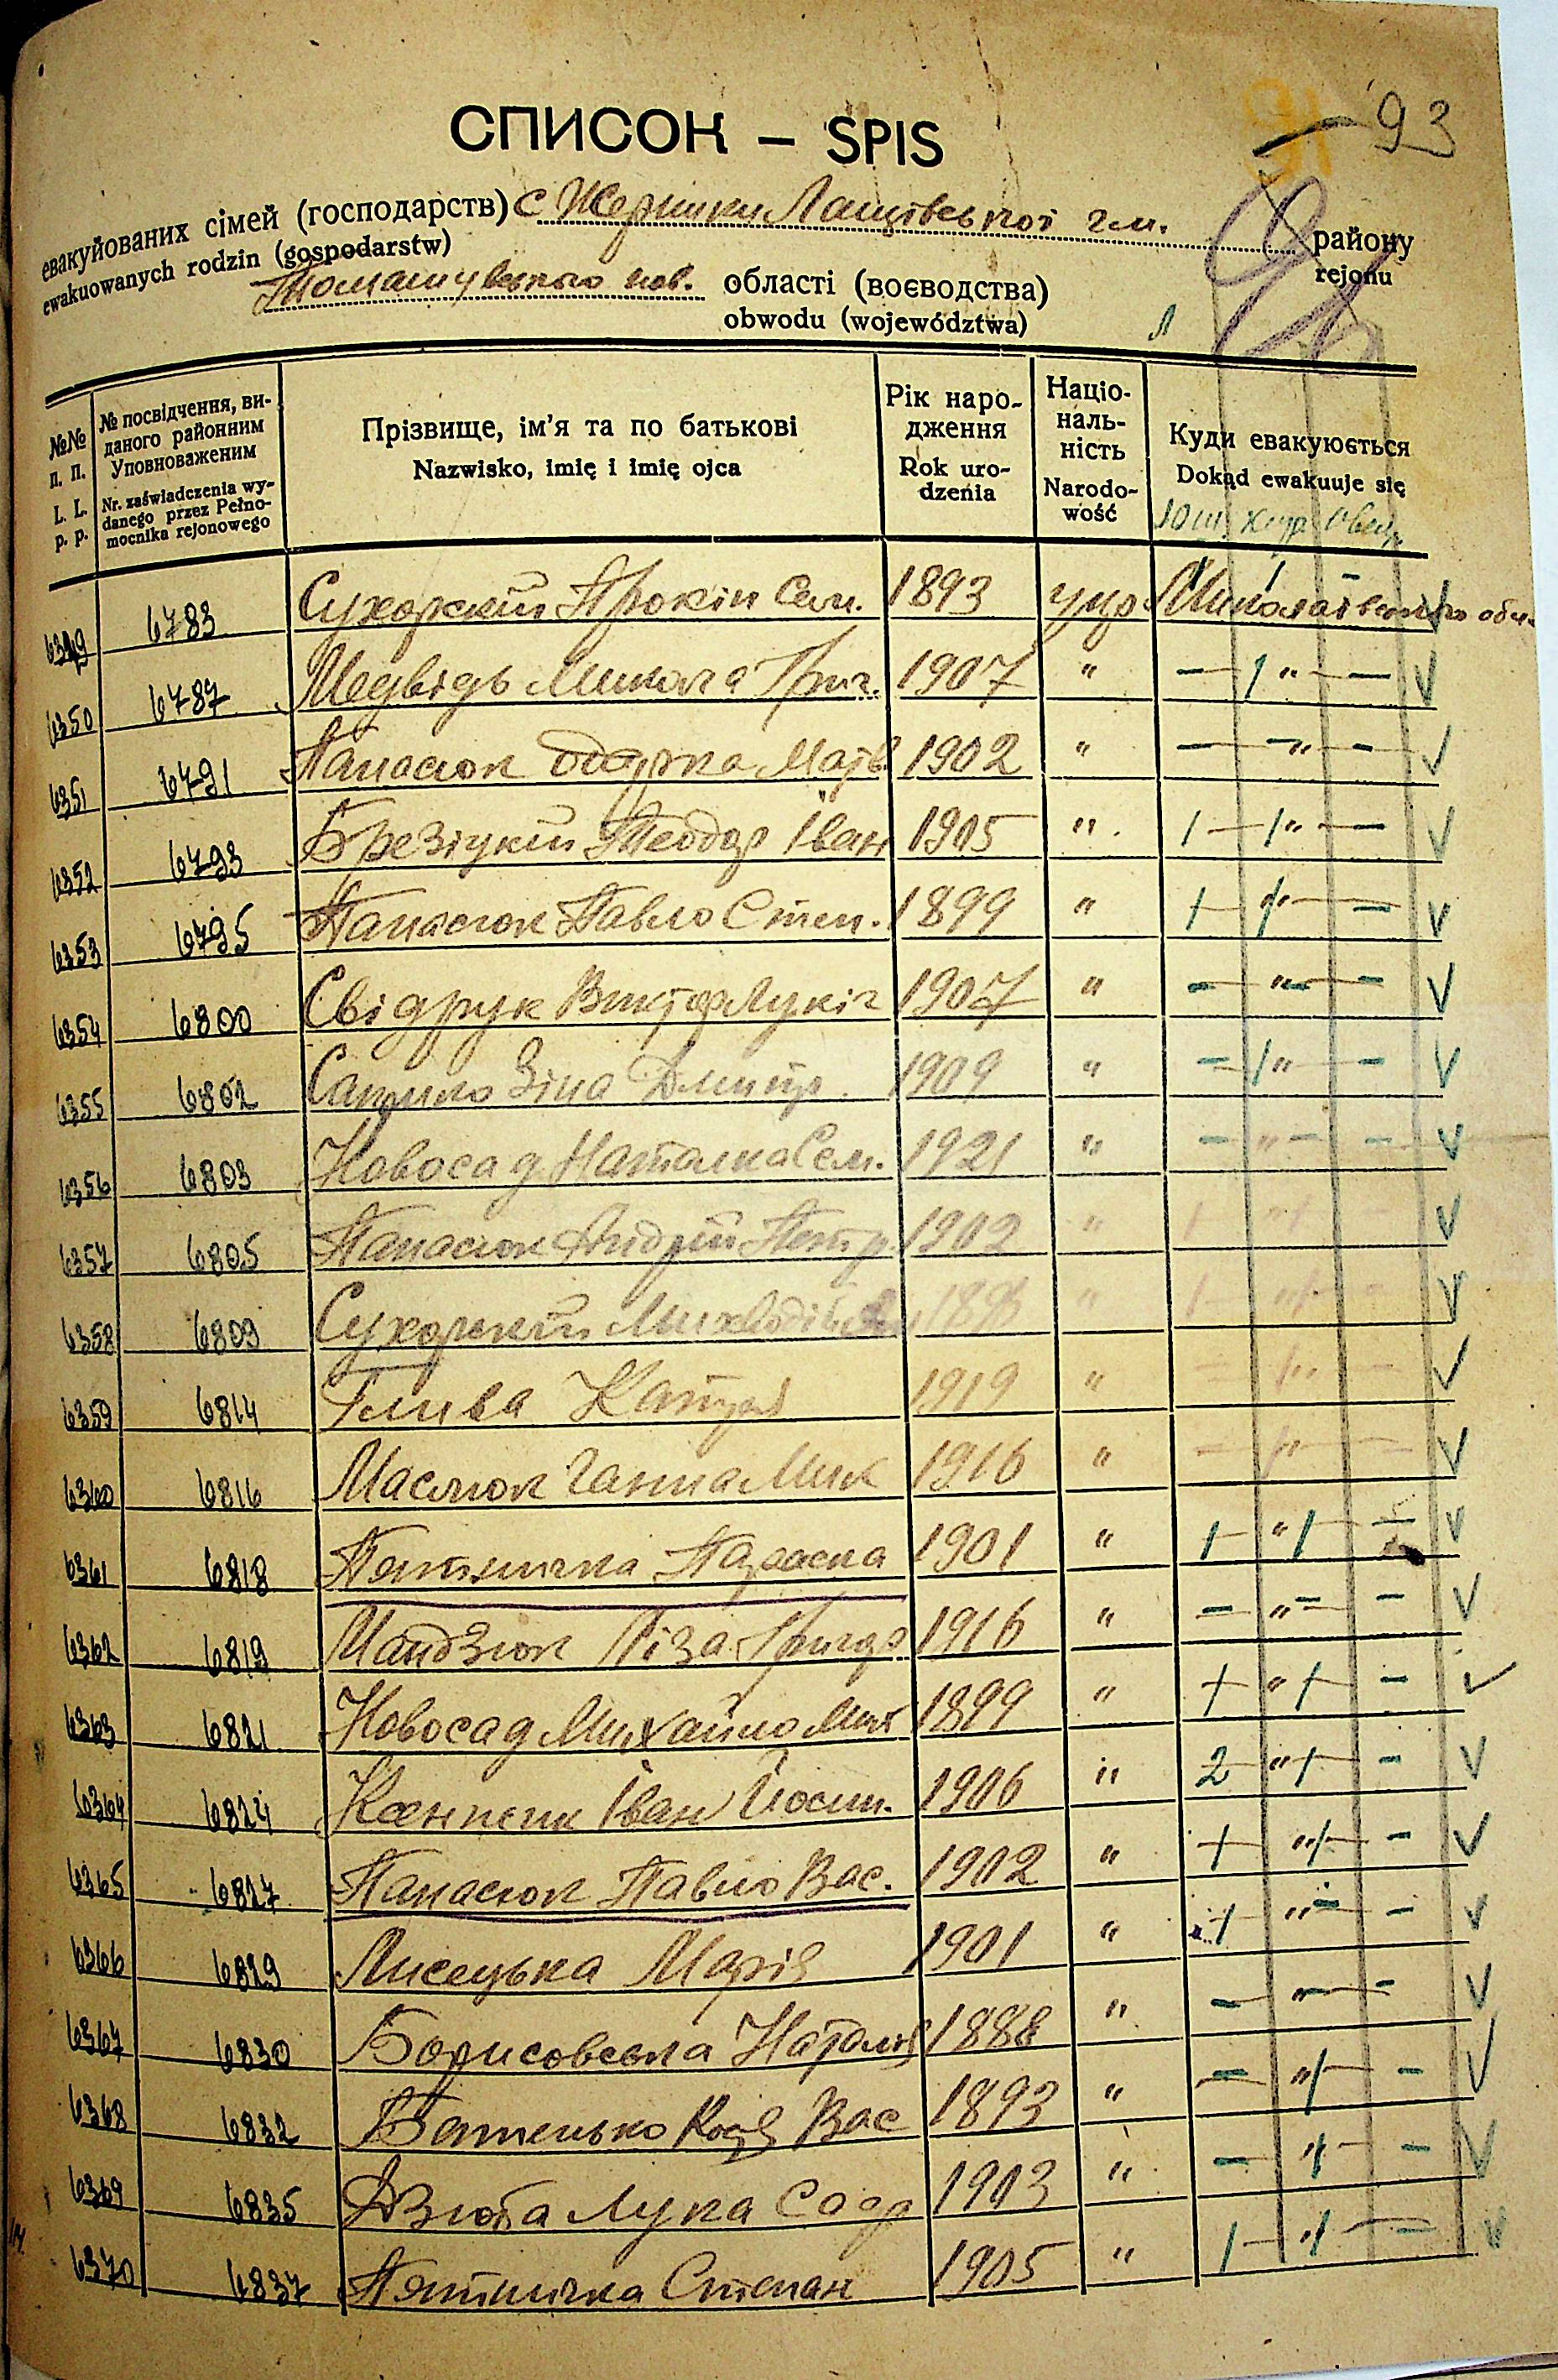 93
91
СПИСОК – SPIS
евакуйованих сімей (господарств) с Жерники Лащівської гм. району
ewakuowanych rodzin (gospodarstw) rejonu
Томашувського пов. області (воєводства)
obwodu (województwa)
№№ п. п. L. L. p. p.
№ посвідчення, виданого районним Уповноваженим
Nr. zaświadczenia wydanego przez Pełnomocnika rejonowego
Прізвище, ім'я та по батькові
Nazwisko, imię i imię ojca
Рік народження
Rok urodzenia
Національність
Narodowość
Куди евакуюється
Dokąd ewakuuje się
6349 6783 Сухорский Прокіп Сем. 1893 укр. Миколаївська обл.
6350 6787 Медвідь Микола Григ. 1907 " — " — V
6351 6791 Панасюк Одарка Матв. 1902 " — " — V
6352 6793 Брезіцкий Теодор Іван 1905 " — " — V
6353 6795 Панасюк Павло Степ. 1899 " — " — V
6354 6800 Свідрук Виктор Лукіч 1907 " — " — V
6355 6802 Зіна Дмитр. 1909 " — " — V
6356 6803 Новосад Наталка Сем. 1921 " — " — V
6357 6805 Панасюк Андрій Петр. 1902 " — " — V
6358 6809 Сухорский " — " — V
6359 6814 Глива Катря 1919 " — " — V
6360 6816 Маслюк Ганна Мик 1916 " — " — V
6361 6818 Пятничка Параска 1901 " — " — V
6362 6819 Мандзюк Ліза Григор. 1916 " — " — V
6363 6821 Новосад Михайло Мих 1899 " — " — V
6364 6824 Іван Йосип. 1906 " 2 — " — V
6365 6827 Панасюк Павло Вас. 1902 " — " — V
6366 6829 Лисецька Марія 1901 " — " — V
6367 6830 Борисовська Наталія 1888 " — " — V
6368 6832 Вас 1893 " — " — V
6369 6835 Дзюба Лука 1903 " — " — V
6370 6837 Пятничка Степан 1905 " — " — V